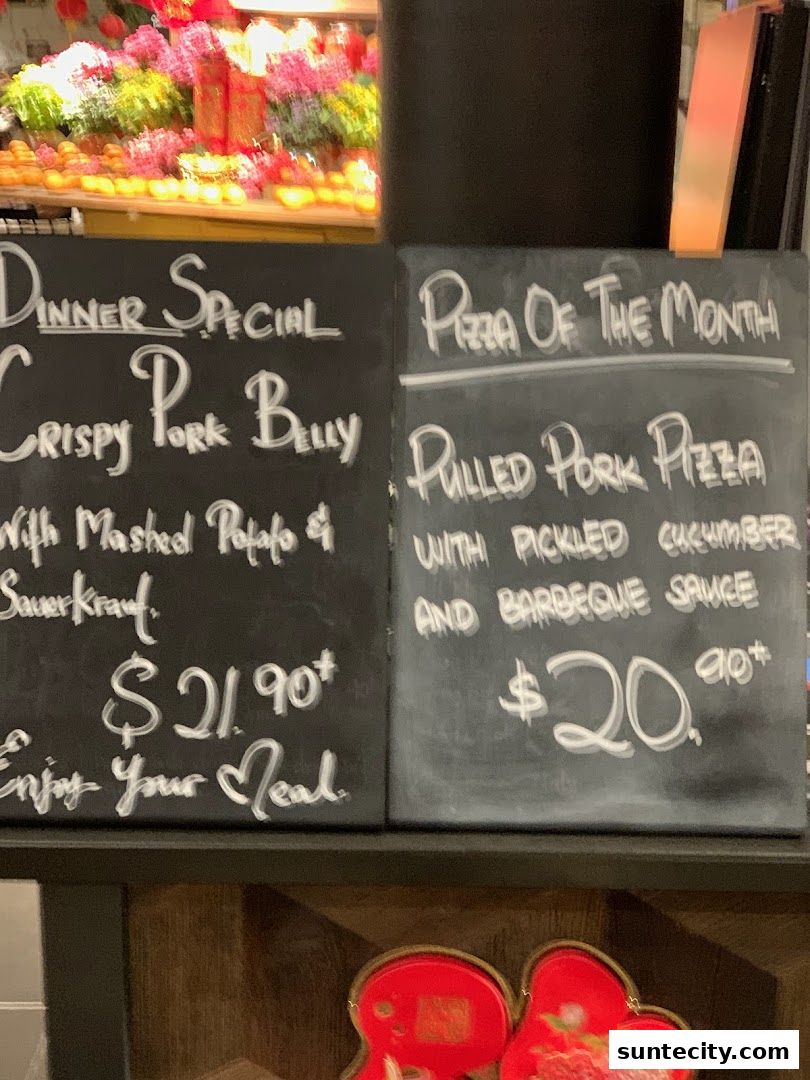 Dinner Special
Crispy Pork Belly
With Mashed Potato &
Sauerkraut.
$21.90+
Enjoy Your Meal.
Pizza Of The Month
Pulled Pork Pizza
WITH PICKLED CUCUMBER
AND BARBEQUE SAUCE
$20.90+
suntecity.com